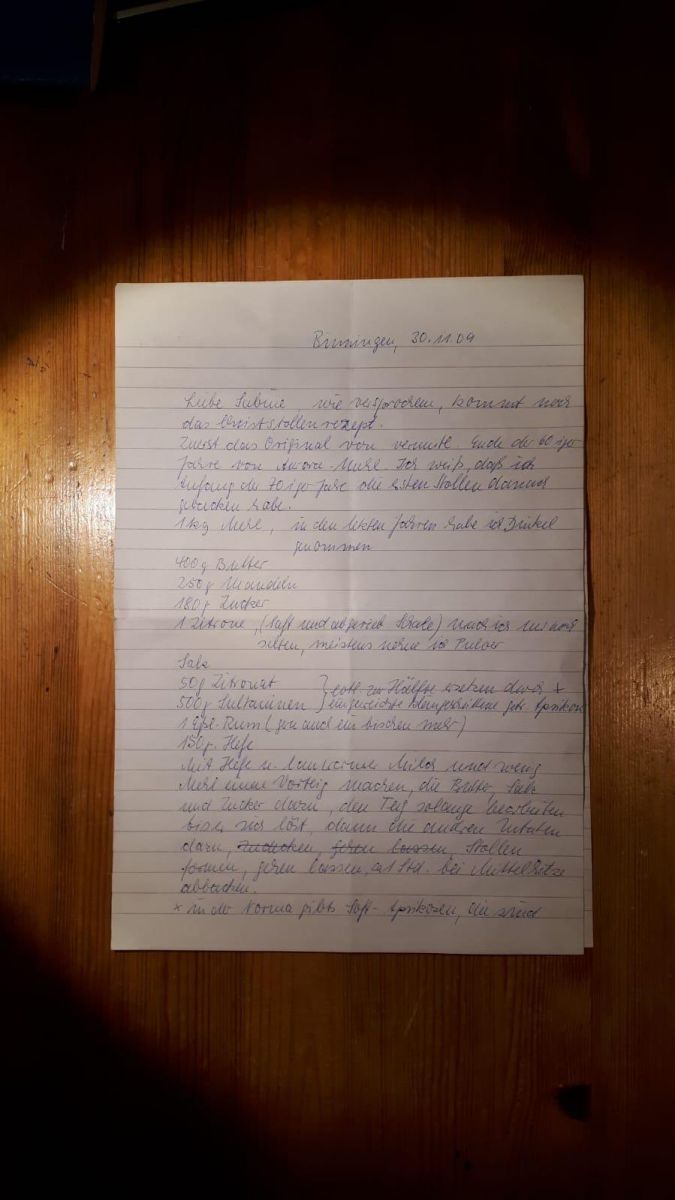 Binningen, 30.11.09
Liebe Sabine wie versprochen, kommt noch
das Christstollenrezept.
Zuerst das Original von vermutl. Ende der 60 iger
Jahre von Aurora-Mehl. Ich weiß, daß ich
Anfang der 70 iger Jahre die ersten Stollen danach
gebacken habe.
1 kg Mehl, in den letzten Jahren habe ich Dinkel
genommen
400 g Butter
250 g Mandeln
180 g Zucker
1 Zitrone, (Saft und abgerieb. Schale) mach ich nur noch
selten, meistens nehme ich Pulver
Salz
50 g Zitronat } evtl. zur Hälfte ersetzen durch x
500 g Sultaninen } eingeweichte kleingeschnittene getr. Aprikosen
1 Eßl. Rum (gern auch ein bischen mehr)
150 g. Hefe
Mit Hefe u. lauwarmer Milch und wenig
Mehl einen Vorteig machen, die Butter, Salz
und Zucker dazu, den Teig solange bearbeiten
bis er sich löst, dann die anderen Zutaten
dazu, gehen lassen, Stollen
formen, gehen lassen, Std. bei Mittelhitze
abbacken.
x in der Norma gibts Soft-Aprikosen, die sind